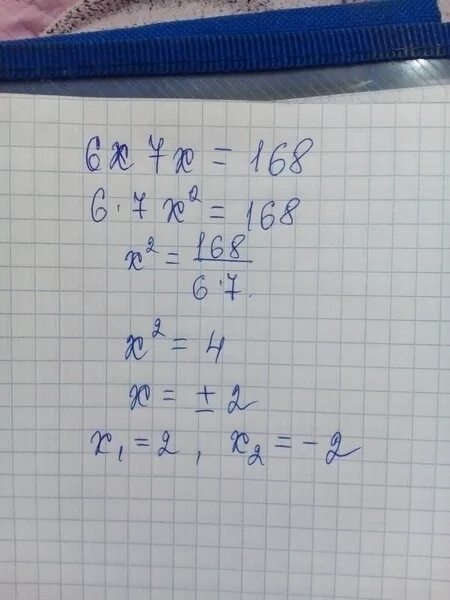 6x 7x = 168
6·7 x² = 168
x² = 168/6·7.
x² = 4
x = ± 2
x₁ = 2, x₂ = -2